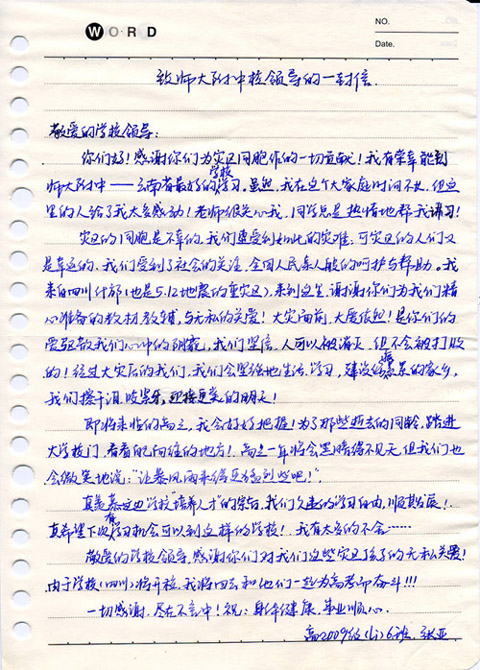 WORD
NO.
Date.
致师大附中校领导的一封信.
敬爱的学校领导:
你们好!感谢你们为灾区同胞作的一切贡献!我有幸能到
师大附中——云南省最好的学校学习.虽然,我在这个大家庭时间不长,但这
里的人给了我太多感动!老师很关心我,同学总是热情地帮我讲习!
灾区的同胞是不幸的,我们遭受到如此的灾难,可灾区的人们又
是幸运的,我们受到了社会的关注,全国人民亲人般的呵护与帮助。我
来自四川什邡(也是5.12地震的重灾区),来到这里,谢谢你们为我们精
心准备的教材教辅,与无私的关爱!大灾面前,大爱依起!是你们的
爱驱散我们心中的阴霾,我们坚信,人可以被消灭,但不会被打败
的!经过大灾后的我们,我们会坚强地生活,学习,建设好震后的家乡,
我们擦干泪,收紧乐,迎接更美的明天!
即将来临的高三,我会好好把握!为了那些逝去的同龄,踏进
大学校门,看看他们向往的地方!高三一年将会黑暗得不见天,但我们也
会微笑地说:"让暴风雨来得更猛烈些吧!"
真羡慕这边学校"培养人才"的宗旨,我们久违的学习自由,顺其发展!
真希望下次有学习机会可以到这样的学校!我有太多的不舍……
敬爱的学校领导,感谢你们对我们这些灾区孩子的无私关爱!
由于学校(四川)将开校,我将回去和他们一起为高考而奋斗!!!
一切感谢,尽在不言中!祝:身体健康,事业顺心.
高2009级(Li)6班,张亚